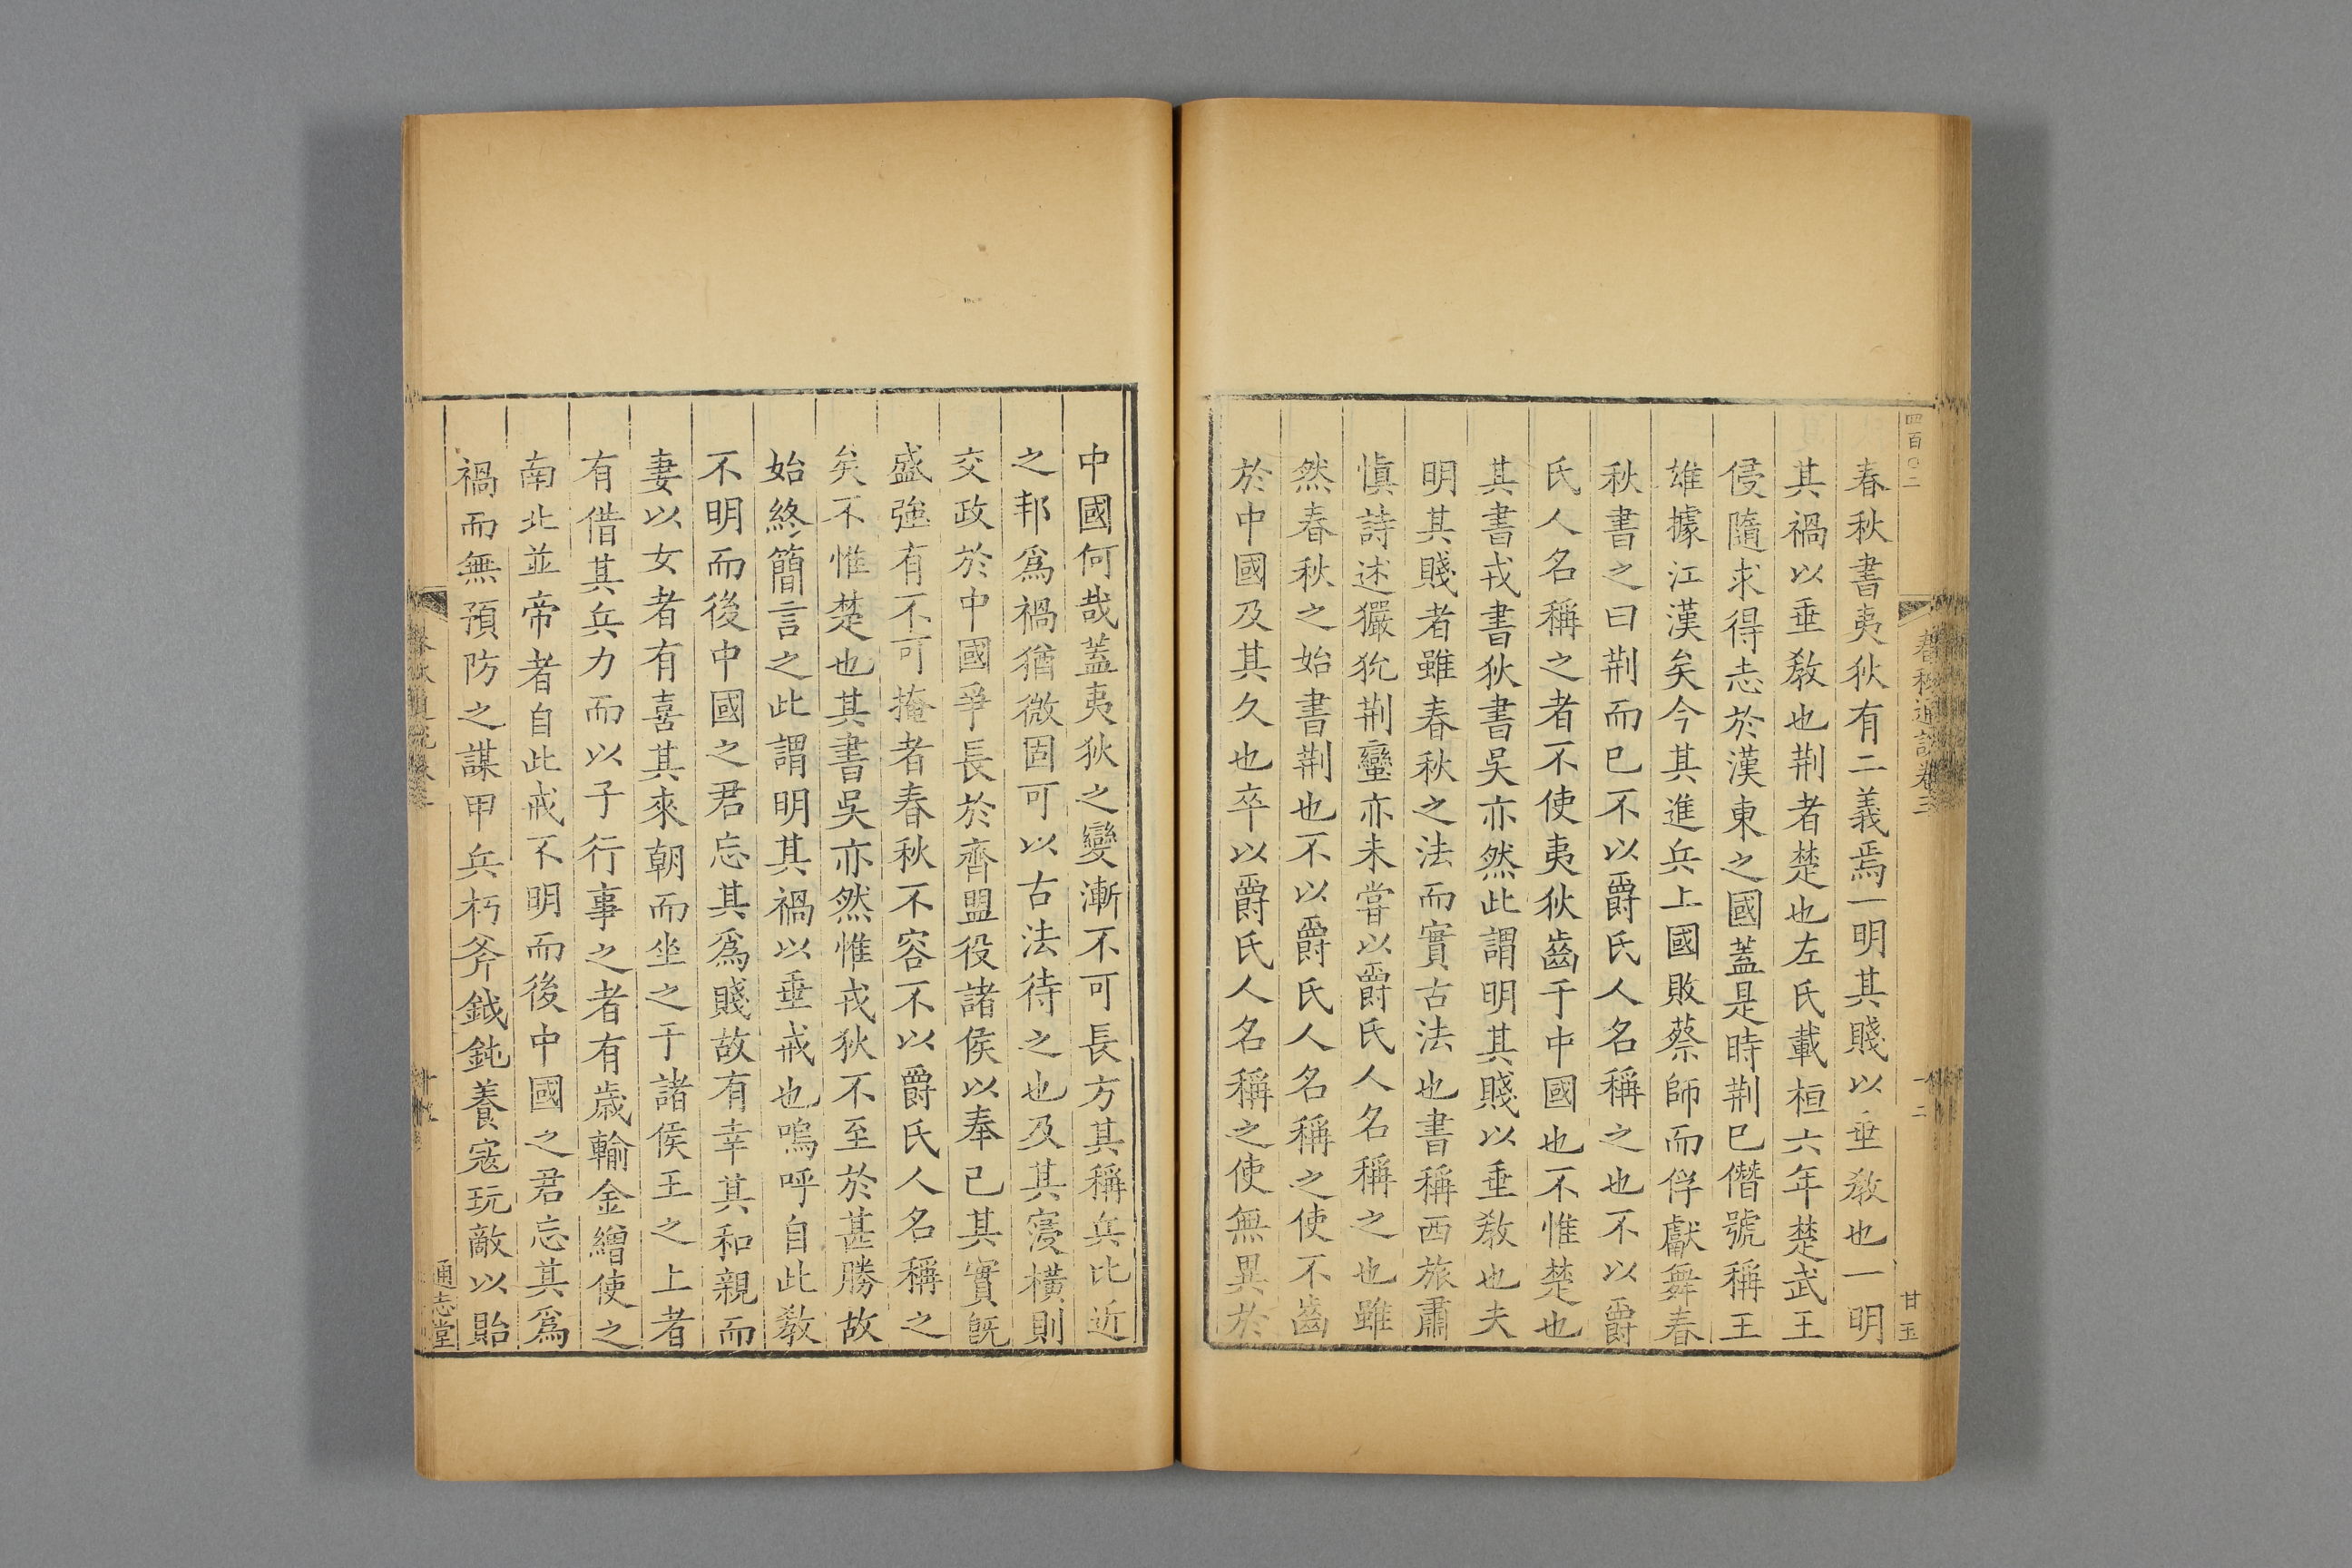 春秋書夷狄有二義焉一明其賤以垂教也一明
其禍以垂教也荆者楚也左氏載桓六年楚武王
侵隨求得志於漢東之國蓋是時荆已僭號稱王
雄據江漢矣今其進兵上國敗蔡師而俘獻舞春
秋書之曰荆而已不以爵氏人名稱之也不以爵
氏人名稱之者不使夷狄齒于中國也不惟楚也
其書戎書狄書吳亦然此謂明其賤以垂教也夫
明其賤者雖春秋之法而實古法也書稱西旅肅
愼詩述玁狁荆蠻亦未嘗以爵氏人名稱之也雖
然春秋之始書荆也不以爵氏人名稱之使不齒
於中國及其久也卒以爵氏人名稱之使無異於
中國何哉蓋夷狄之變漸不可長方其稱兵比近
之邦爲禍猶微固可以古法待之也及其寖橫則
交政於中國爭長於齊盟役諸侯以奉己其實既
盛強有不可掩者春秋不容不以爵氏人名稱之
矣不惟楚也其書吳亦然惟戎狄不至於甚勝故
始終簡言之此謂明其禍以垂戒也嗚呼自此教
不明而後中國之君忘其爲賤故有幸其和親而
妻以女者有喜其來朝而坐之于諸侯王之上者
有借其兵力而以子行事之者有歲輸金繒使之
南北並帝者自此戒不明而後中國之君忘其爲
禍而無預防之謀甲兵朽斧鉞鈍養寇玩敵以貽
通志堂
四百〇二
春秋通說卷三
十二
甘玉